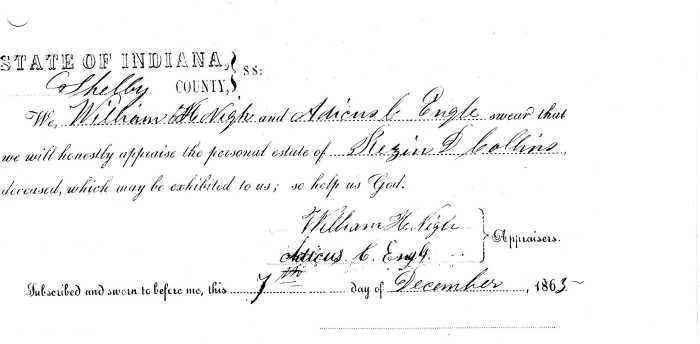 STATE OF INDIANA, } SS:
Shelby COUNTY, }
We, William H. Nigh and Adicus C Engle swear that
we will honestly appraise the personal estate of Rezin D Collins,
deceased, which may be exhibited to us; so help us God.
William H. Nigh } Appraisers.
Adicus C. Engle
Subscribed and sworn to before me, this 7th day of December, 1863